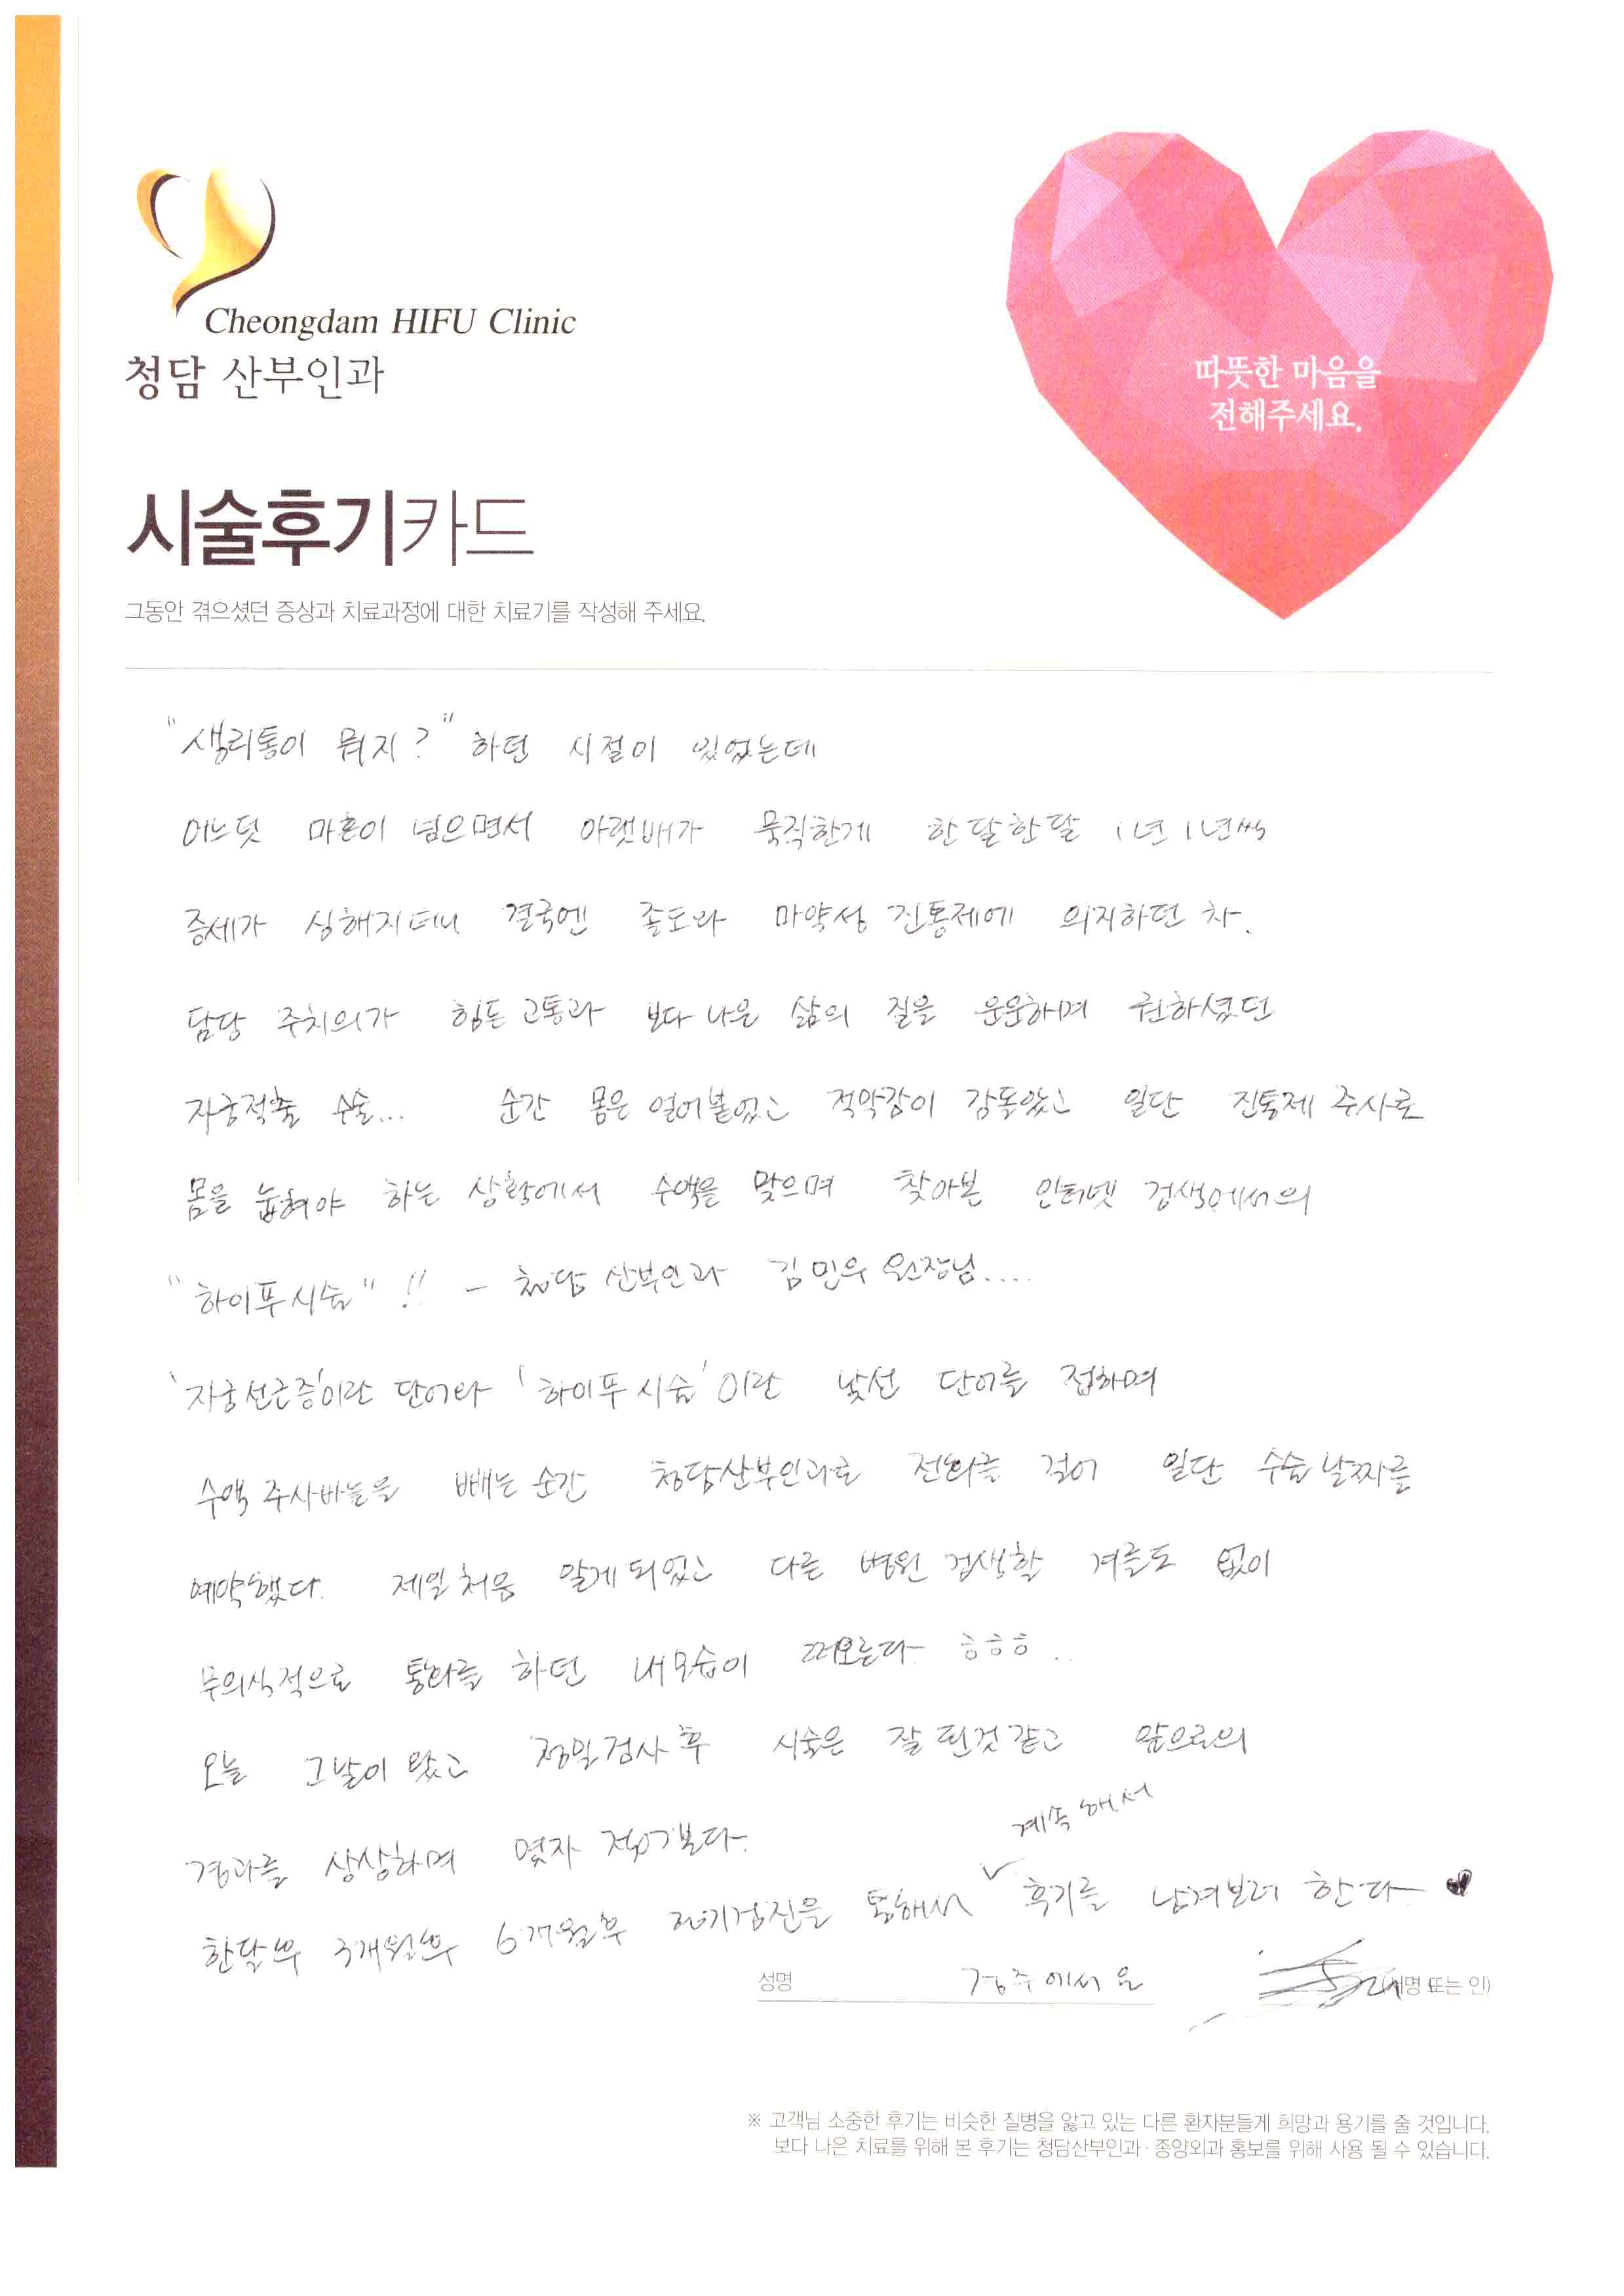 Cheongdam HIFU Clinic
청담 산부인과
따뜻한 마음을
전해주세요.
시술후기카드
그동안 겪으셨던 증상과 치료과정에 대한 치료기를 작성해 주세요.
"생리통이 뭐지?" 하던 시절이 있었는데
어느덧 마흔이 넘으면서 아랫배가 묵직한게 한달한달 1년 1년씩
증세가 심해지더니 결국엔 졸도와 마약성 진통제에 의지하던 차.
담당 주치의가 힘든 고통과 보다 나은 삶의 질을 운운하며 권하셨던
자궁적출 수술... 순간 몸은 얼어붙었고 적막감이 감돌았고 일단 진통제 주사로
몸을 눕혀야 하는 상황에서 수액을 맞으며 찾아본 인터넷 검색에서의
"하이푸시술"!! - 청담 산부인과 김민우 원장님....
'자궁선근증'이란 단어와 '하이푸시술'이란 낯선 단어를 접하며
수액 주사바늘을 빼는 순간 청담산부인과로 전화를 걸어 일단 수술날짜를
예약했다. 제일처음 알게되었고 다른 병원 검색할 겨를도 없이
무의식적으로 통화를 하던 내모습이 떠오른다 ㅎㅎㅎ..
오늘 그날이 왔고 정밀검사후 시술은 잘 된것같고 앞으로의
경과를 상상하며 몇자 적어본다.
한달후 3개월후 6개월후 정기검진을 통해서 ∨계속해서 후기를 남겨보려 한다 ♥
성명 경주에서 온 (서명 또는 인)
※ 고객님 소중한 후기는 비슷한 질병을 앓고 있는 다른 환자분들게 희망과 용기를 줄 것입니다.
보다 나은 치료를 위해 본 후기는 청담산부인과·종양외과 홍보를 위해 사용 될 수 있습니다.